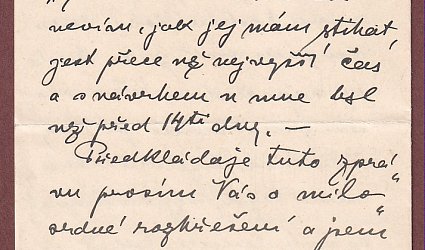 nevím, jak jej mám stíhat,
jest přece než nejvyšší čas
a s návrhem u mne byl
než před 14ti dny. —
Předkládaje tuto zprá„
vu prosím Vás o milo„
srdné rozhřešení a jsem